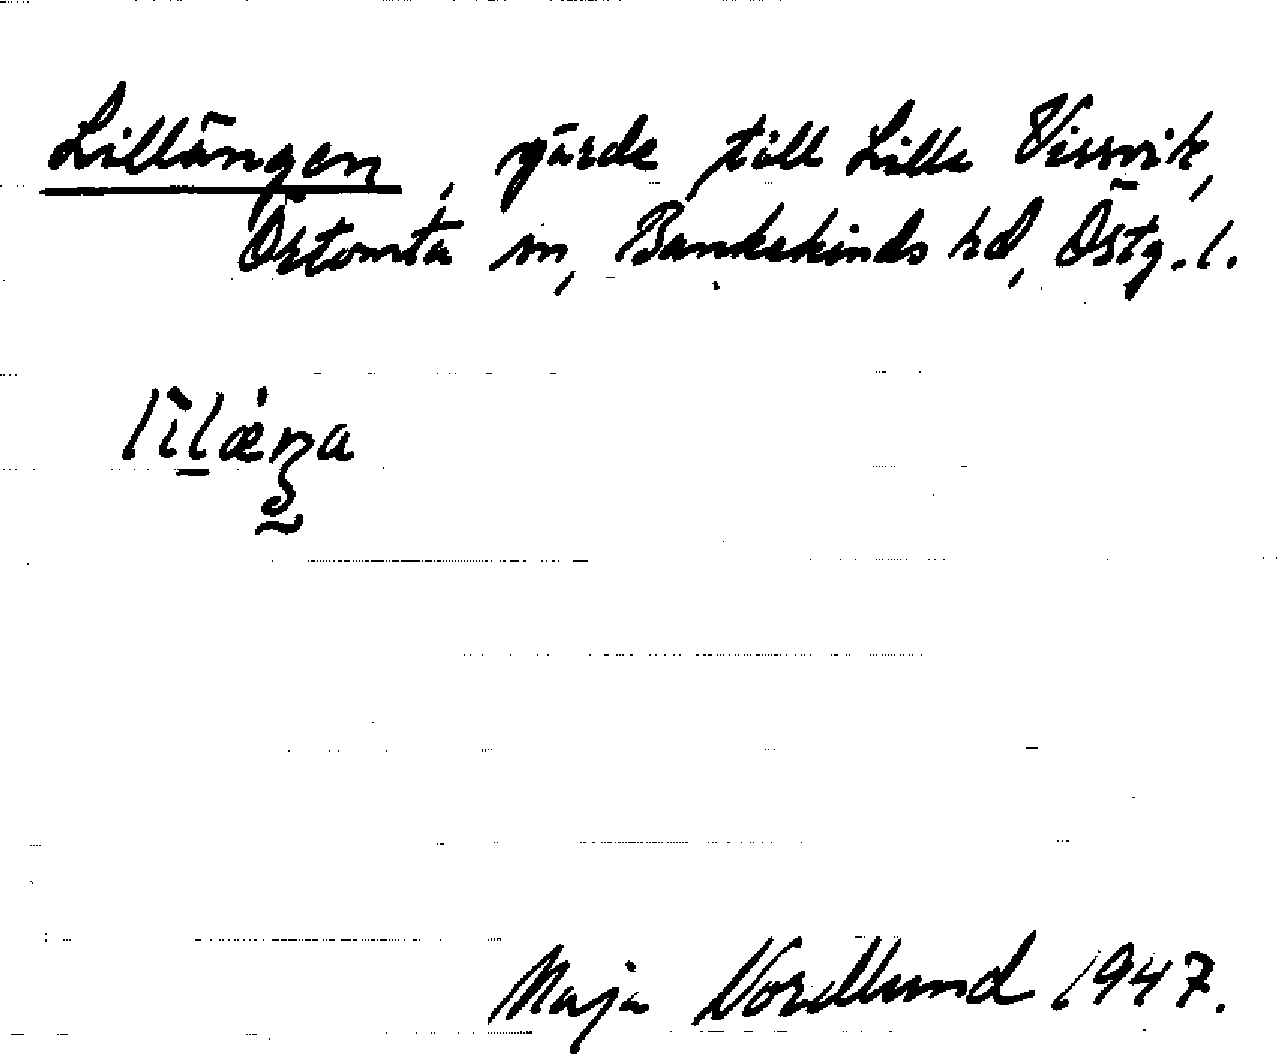 Lillängen, gärde till Lilla Vissvik,
Östomta sn, Bankekinds hd, Östg. l.
Maja Nordlund 1947.